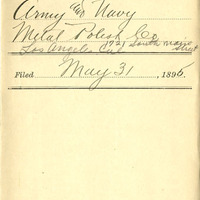 Army and Navy
Metal Polish Co
721 South Main
Los Angeles Cal Street
Filed May 31, 1895.